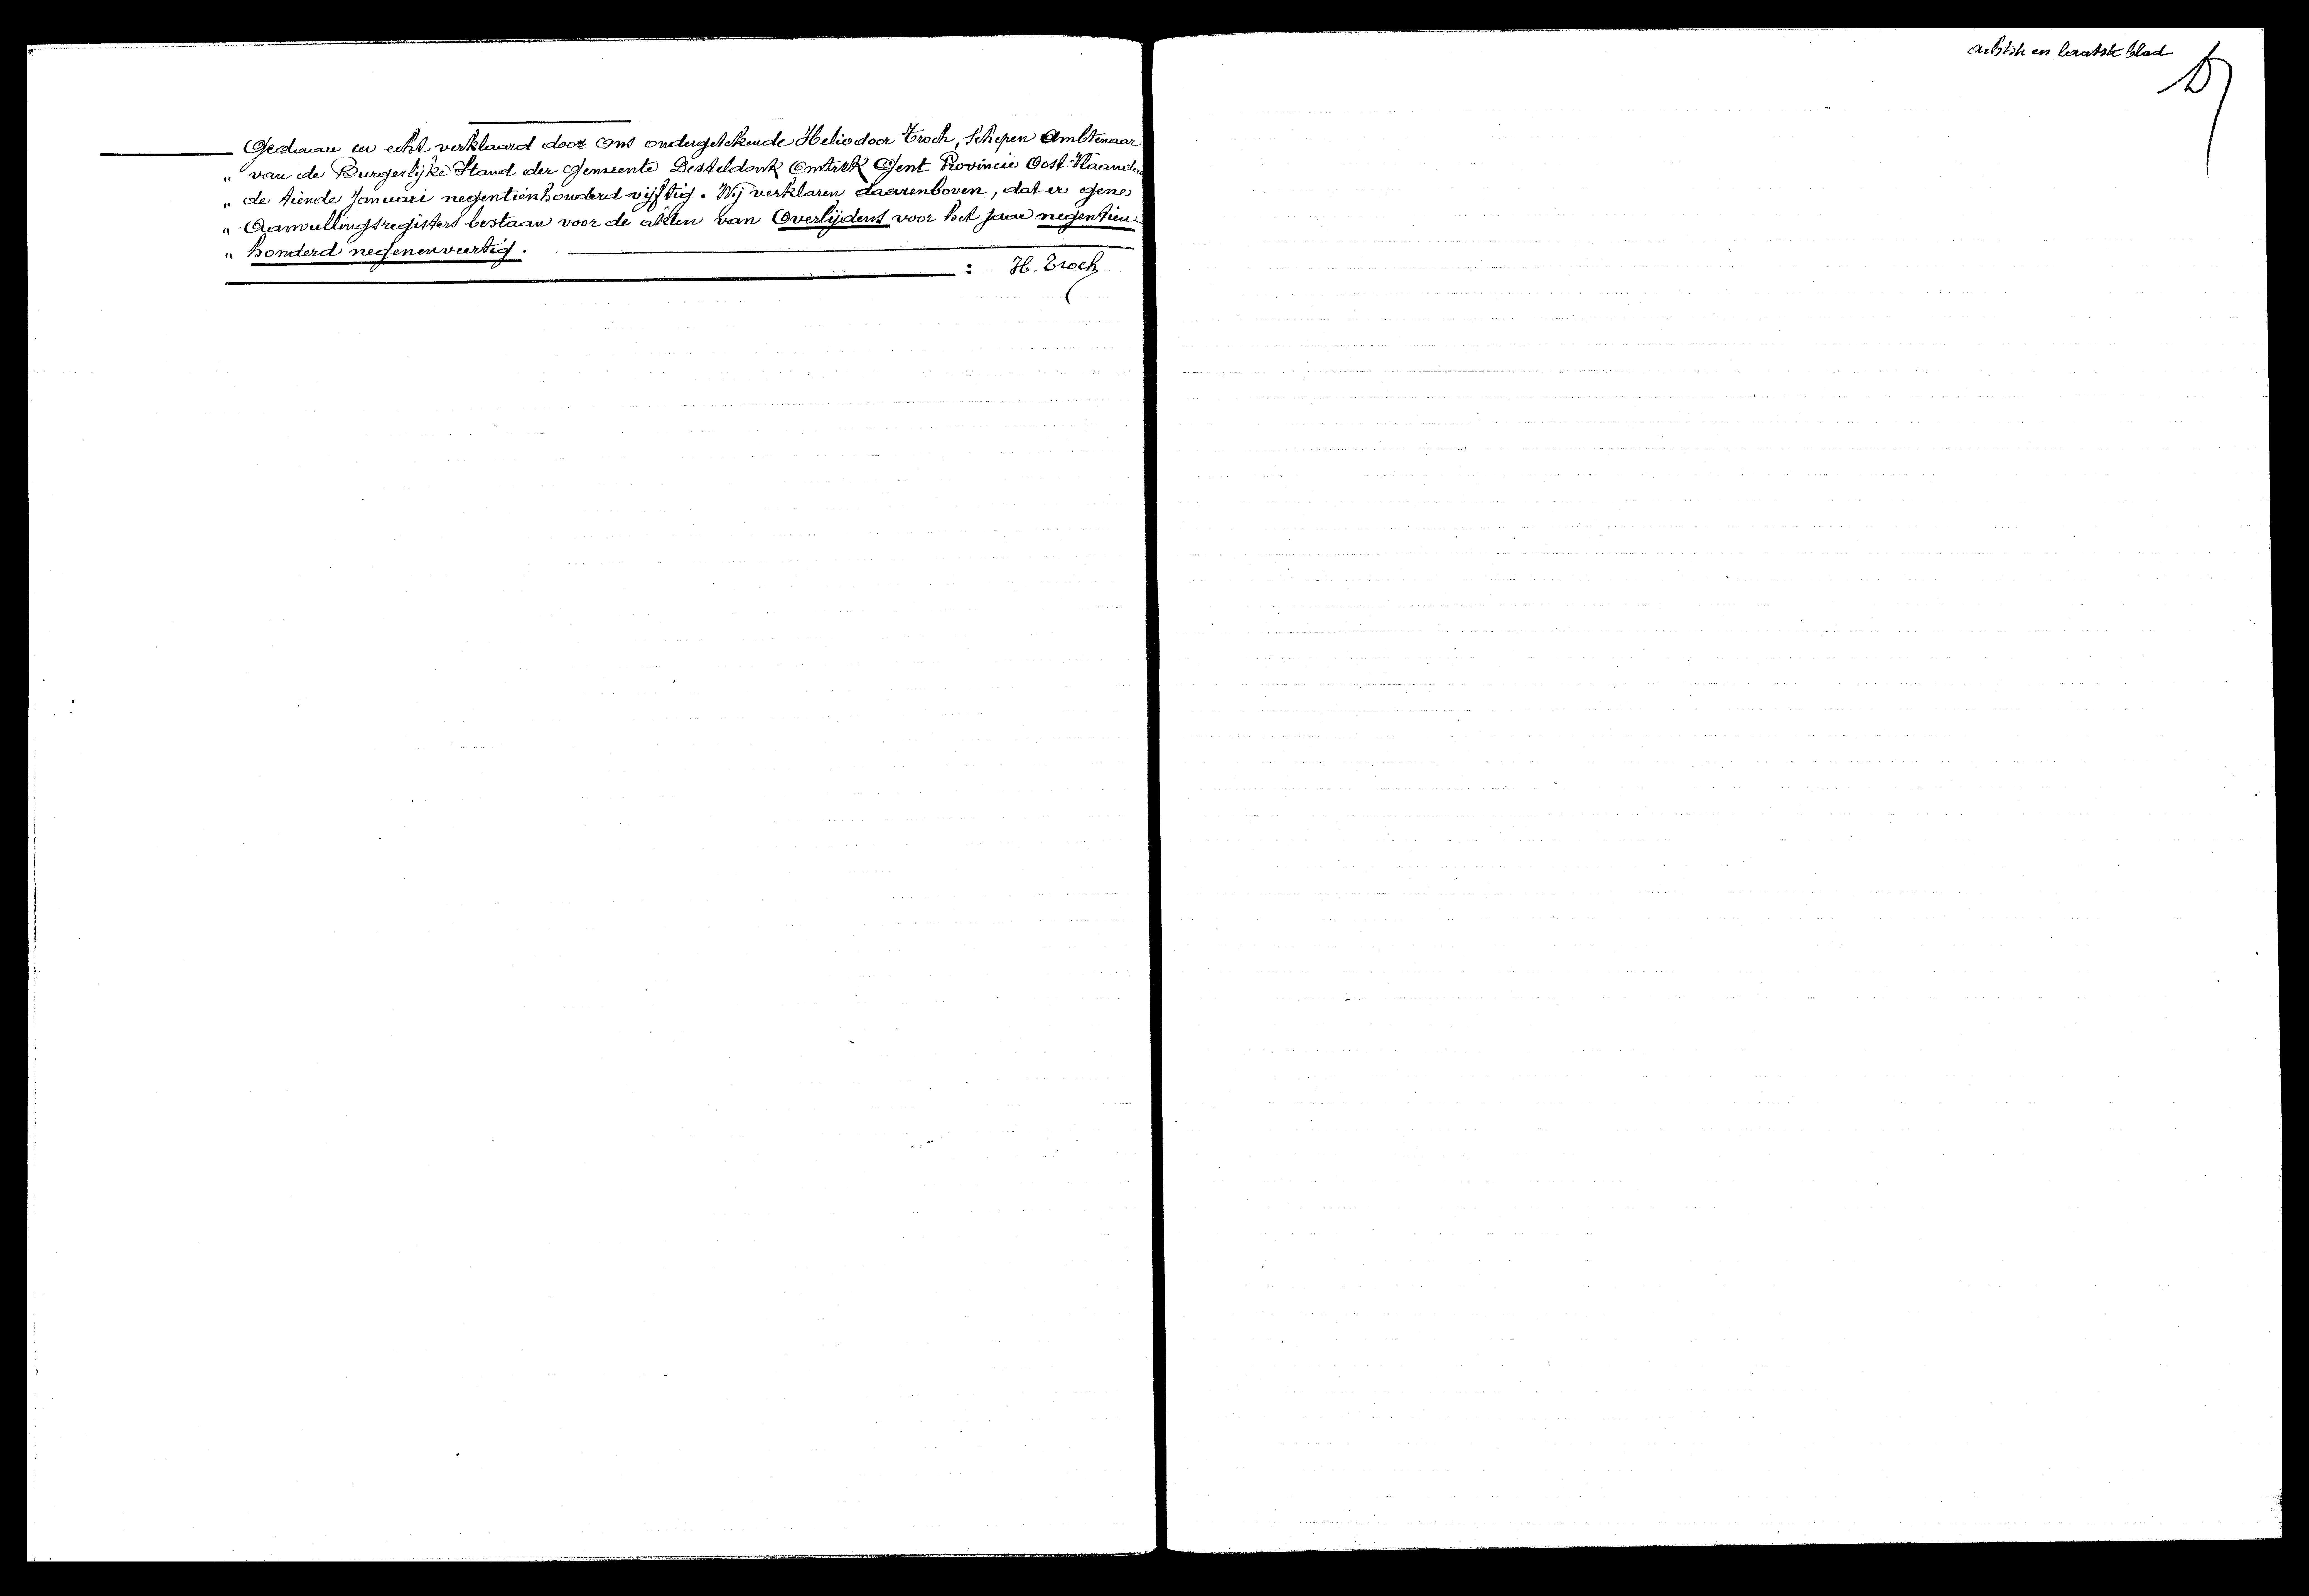 Gedaan en echt verklaard door ons ondergetekende Heliodoor Troch, Schepen Ambtenaar
„ van de Burgerlijke Stand der Gemeente Desteldonk Omtrek Gent Provincie Oost-Vlaanderen
„ de tiende Januari negentienhonderd vijftig. Wij verklaren daarenboven, dat er gene
„ Aanvullingsregisters bestaan voor de akten van Overlijdens voor het jaar negentien-
„ honderd negenenveertig.
: H. Troch
achtste en laatste blad